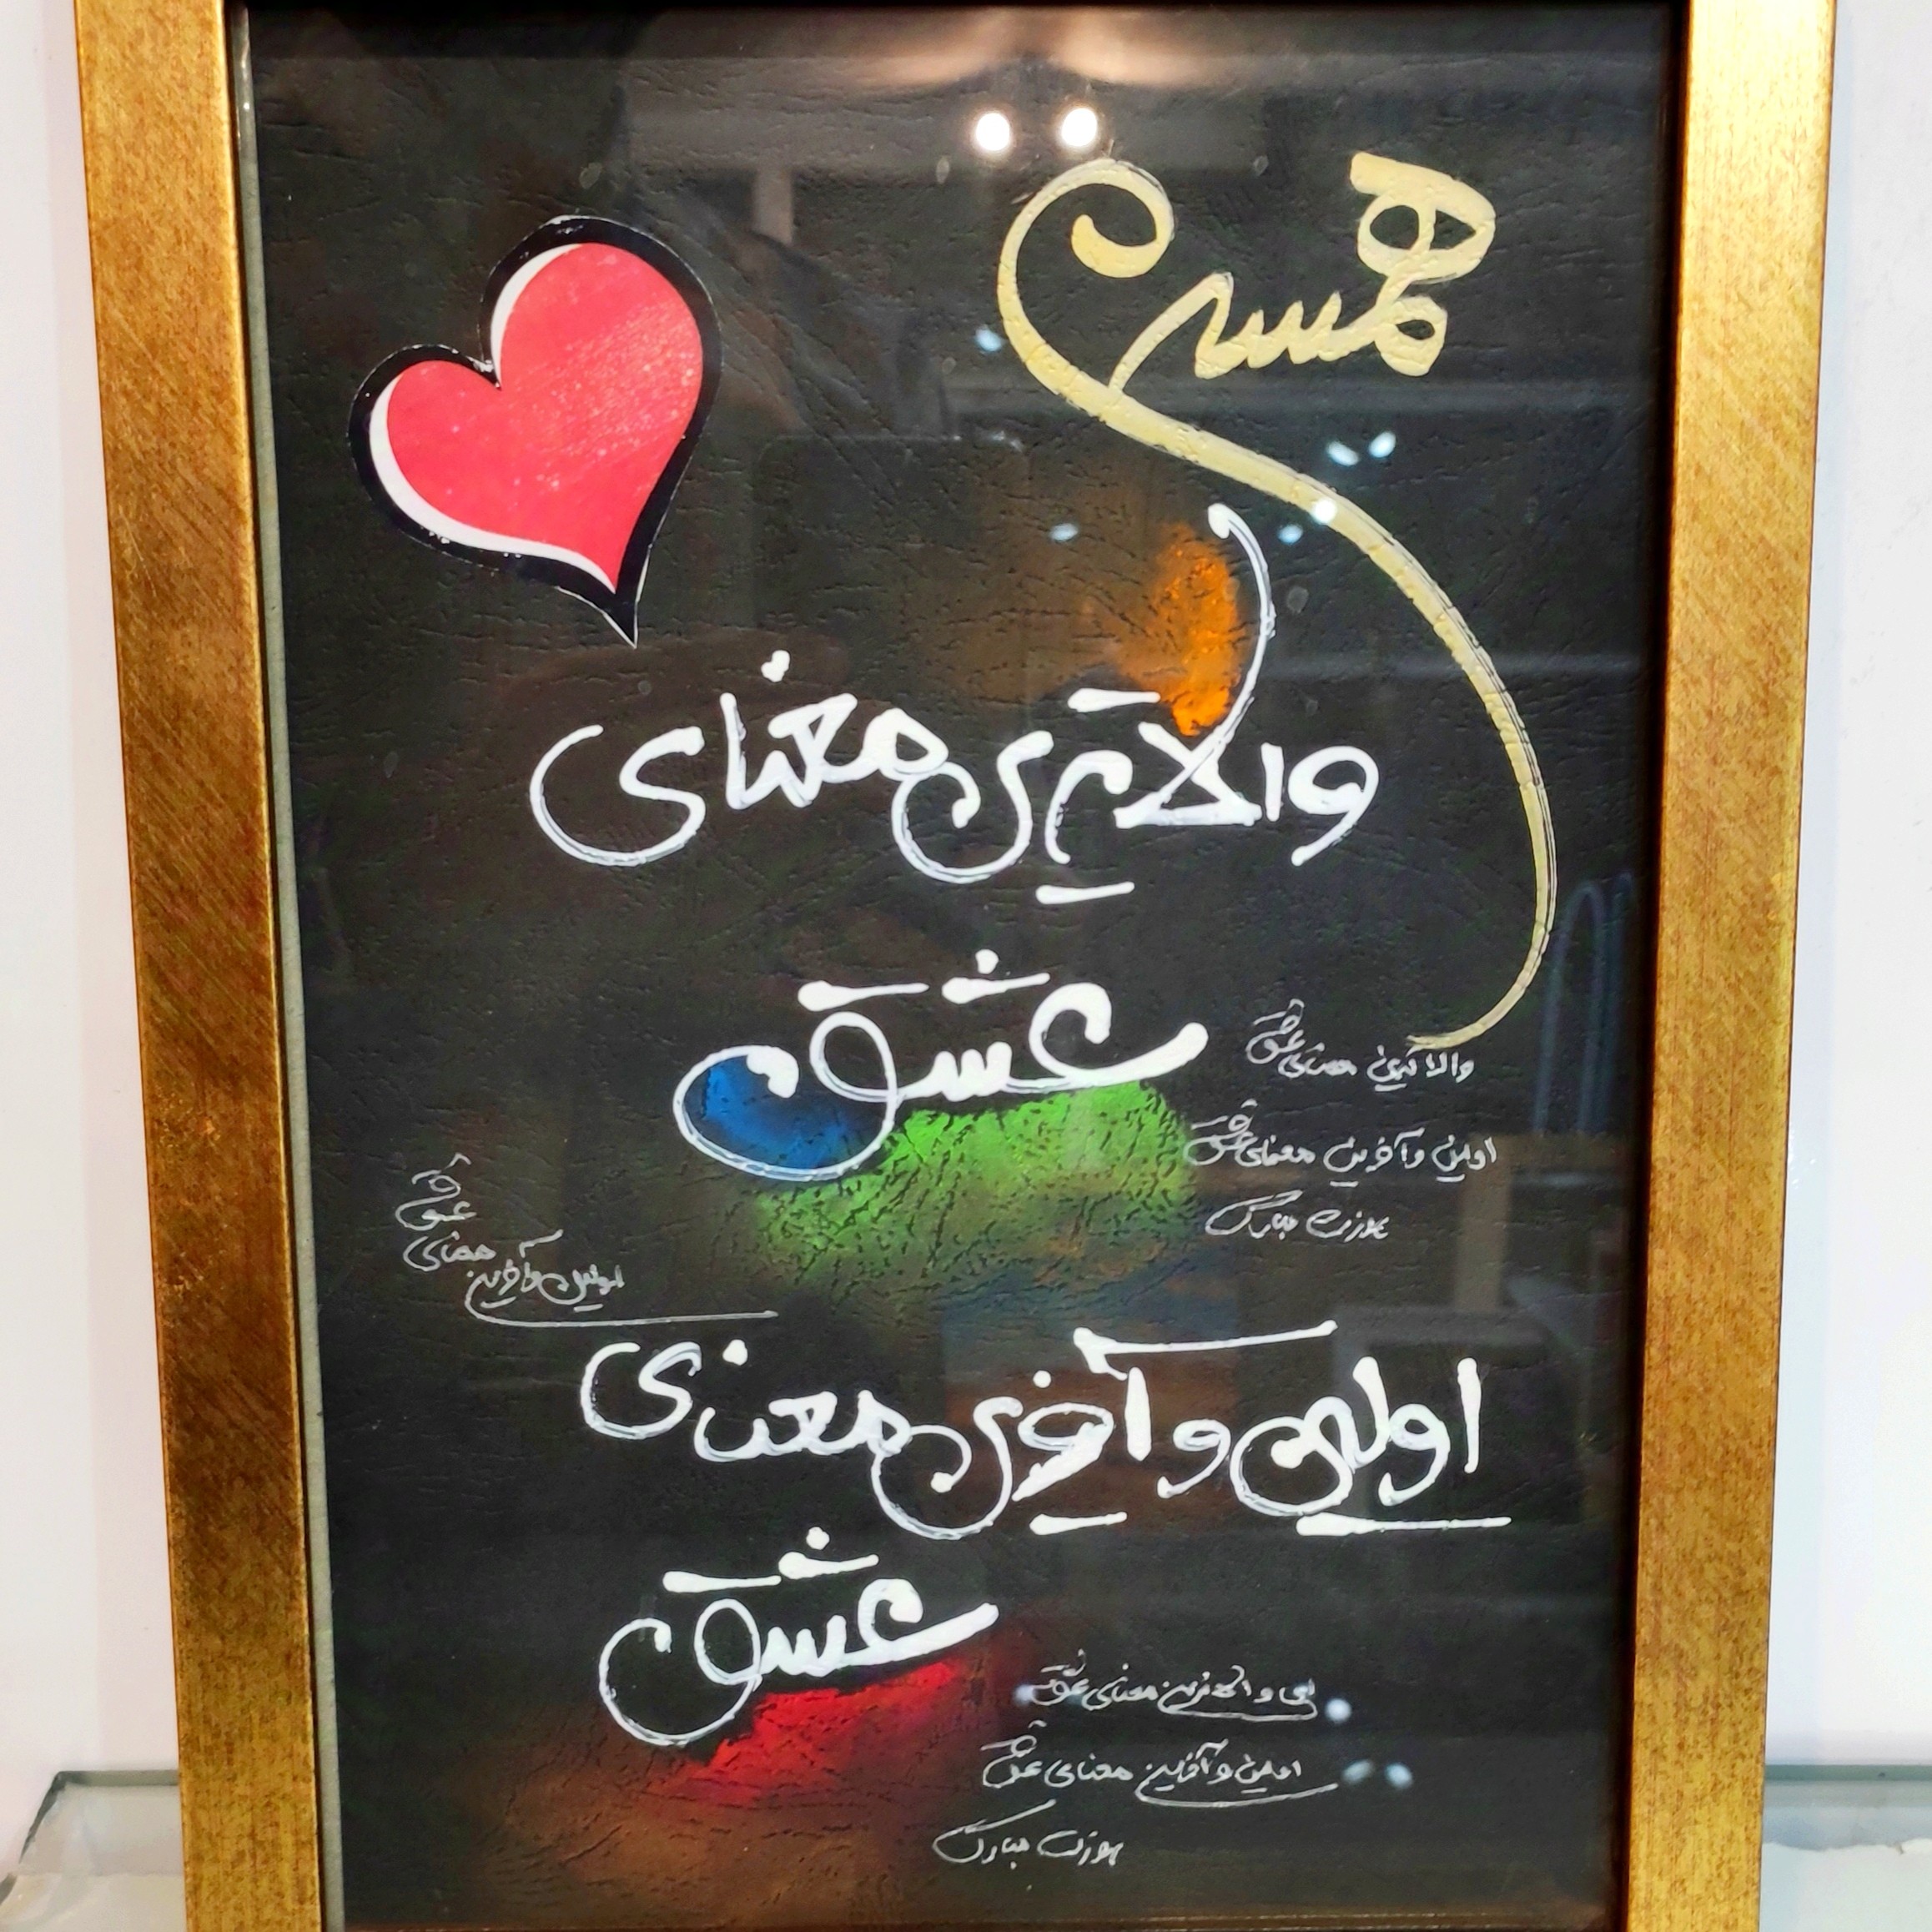 همسرم
والاترین معنای
عشق
والاترین معنای عشق
اولین و آخرین معنای عشق
روزت مبارک
اولین و آخرین معنای عشق
اولین و آخرین معنای
عشق
والاترین معنای عشق
اولین و آخرین معنای عشق
روزت مبارک